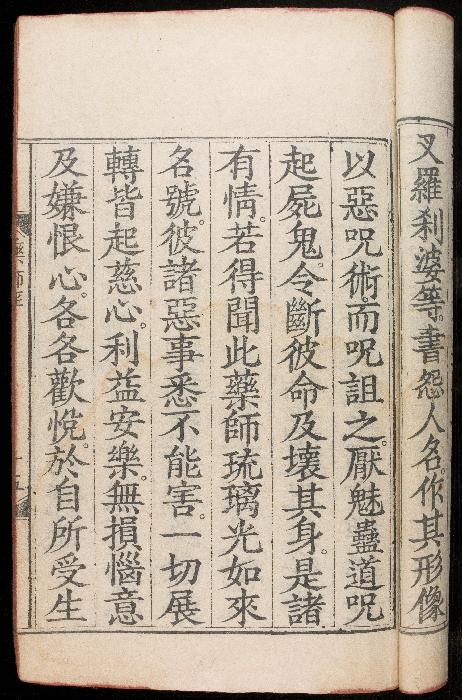 叉羅剎婆等。書怨人名。作其形像
以惡呪術。而呪詛之。厭魅蠱道呪
起屍鬼。令斷彼命及壞其身。是諸
有情。若得聞此藥師琉璃光如來
名號。彼諸惡事悉不能害。一切展
轉皆起慈心。利益安樂。無損惱意
及嫌恨心。各各歡悅。於自所受生